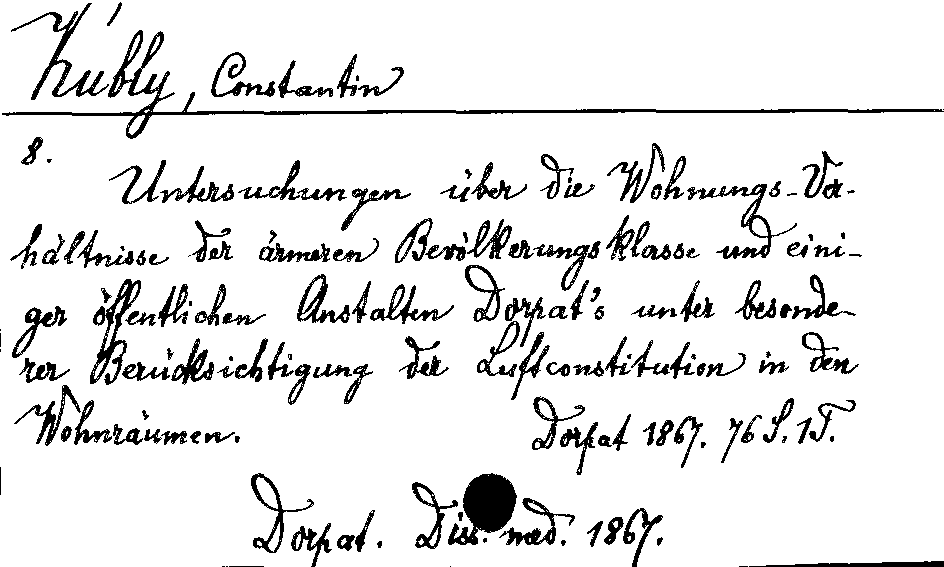 Kubly, Constantin
8.
Untersuchungen über die Wohnungs-Ver-
hältnisse der ärmeren Bevölkerungsklasse und eini-
ger öffentlichen Anstalten Dorpat's unter besonde-
rer Berücksichtigung der Luftconstitution in den
Wohnräumen. Dorpat 1867. 76 S. 1 T.
Dorpat. Diss. med. 1867.